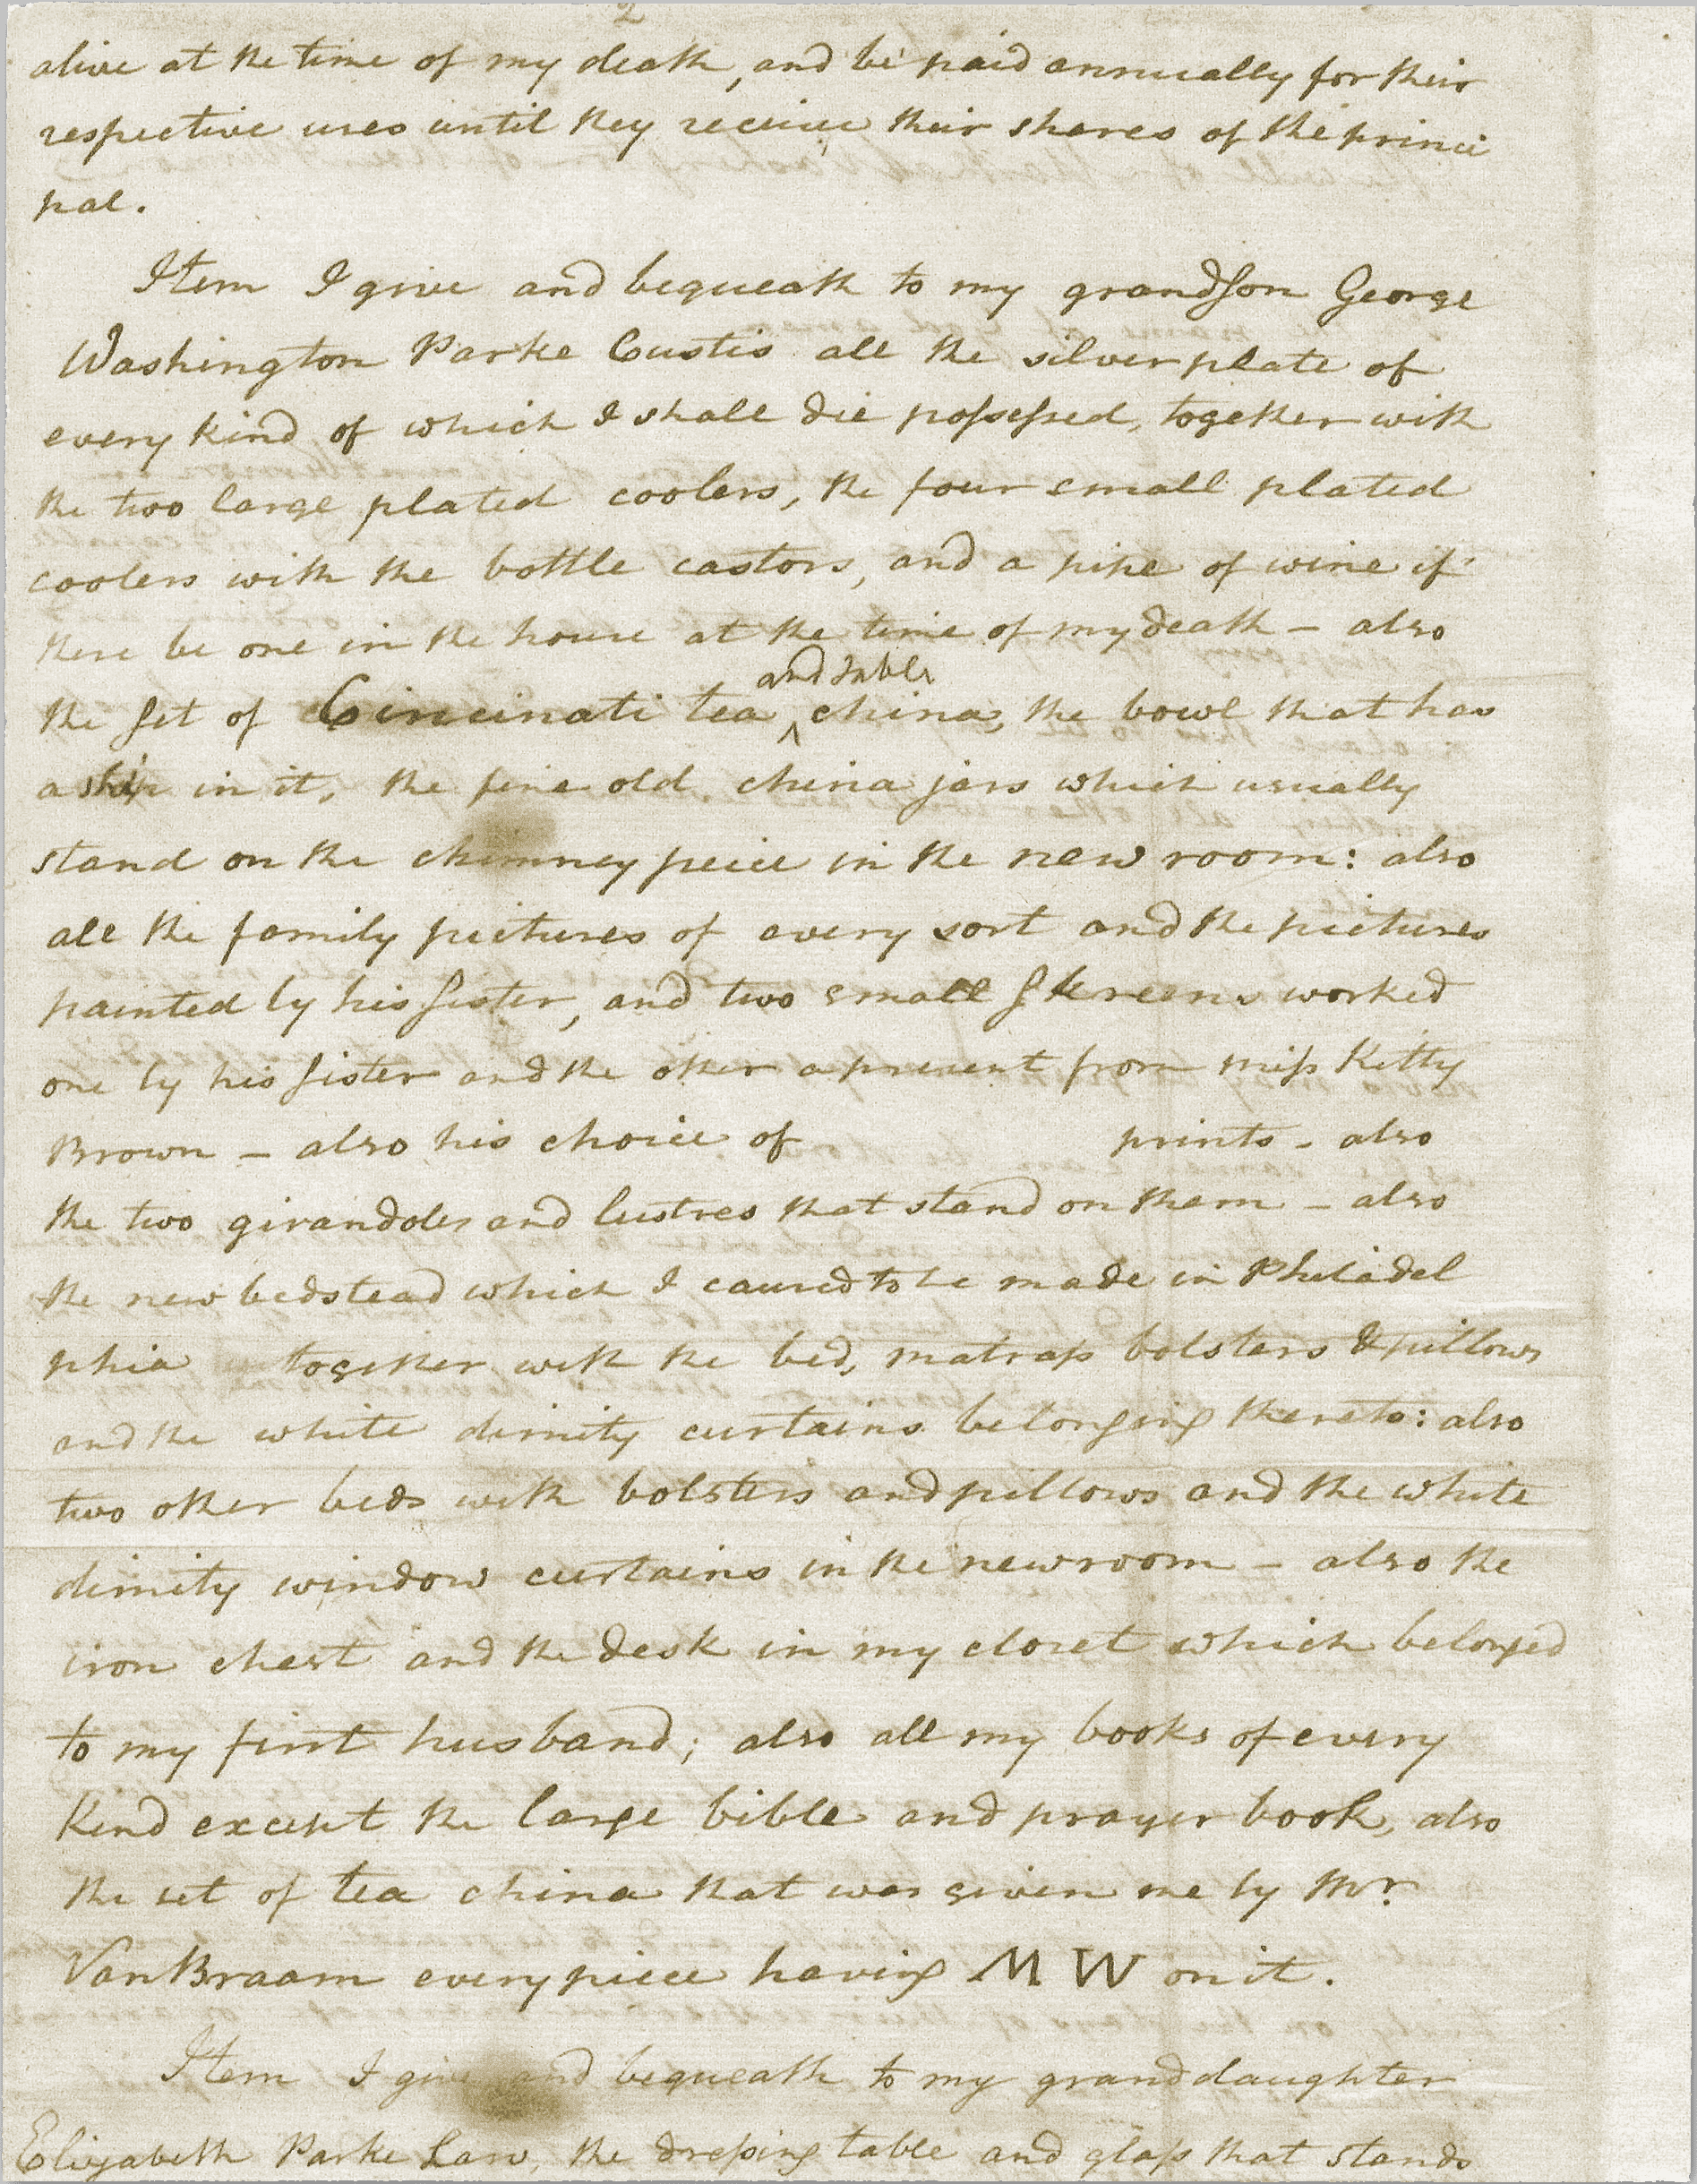 2
alive at the time of my death, and be paid annually for their
respective uses until they receive their shares of the princi
pal.
Item I give and bequeath to my grandson George
Washington Parke Custis all the silver plate of
every kind of which I shall die possessed, together with
the two large plated coolers, the four small plated
coolers with the bottle castors, and a pipe of wine if
there be one in the house at the time of my death – also
and table
the set of Cincinati tea ^ china, the bowl that has
a ship in it, the fine old china jars which usually
stand on the chimney peice in the new room: also
all the family pictures of every sort and the pictures
painted by his sister, and two small skreens worked
one by his sister and the other a present from miss Kitty
Brown – also his choice of prints – also
the two girandoles and lustres that stand on them – also
the new bedstead which I caused to be made in Philadel
phia together with the bed, matrass bolsters & pillows
and the white dimity curtains belonging thereto: also
two other beds with bolsters and pillows and the white
dimity window curtains in the new room – also the
iron chest and the desk in my closet which belonged
to my first husband; also all my books of every
kind except the large bible and prayer book, also
the set of tea china that was given me by Mr.
VanBraam every piece having M W on it.
Item I give and bequeath to my grand daughter
Elizabeth Parke Law, the dressing table and glass that stands